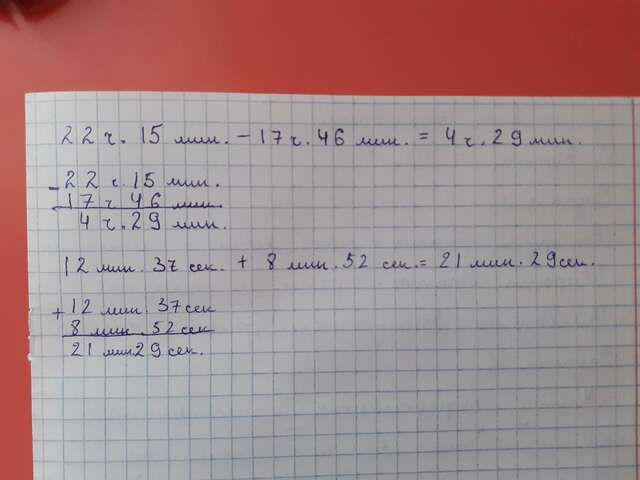 22 ч. 15 мин. - 17 ч. 46 мин. = 4 ч. 29 мин.
- 22 ч. 15 мин.
17 ч 46 мин.
4 ч. 29 мин.
12 мин. 37 сек. + 8 мин. 52 сек. = 21 мин. 29 сек.
+ 12 мин. 37 сек
8 мин. 52 сек
21 мин 29 сек.